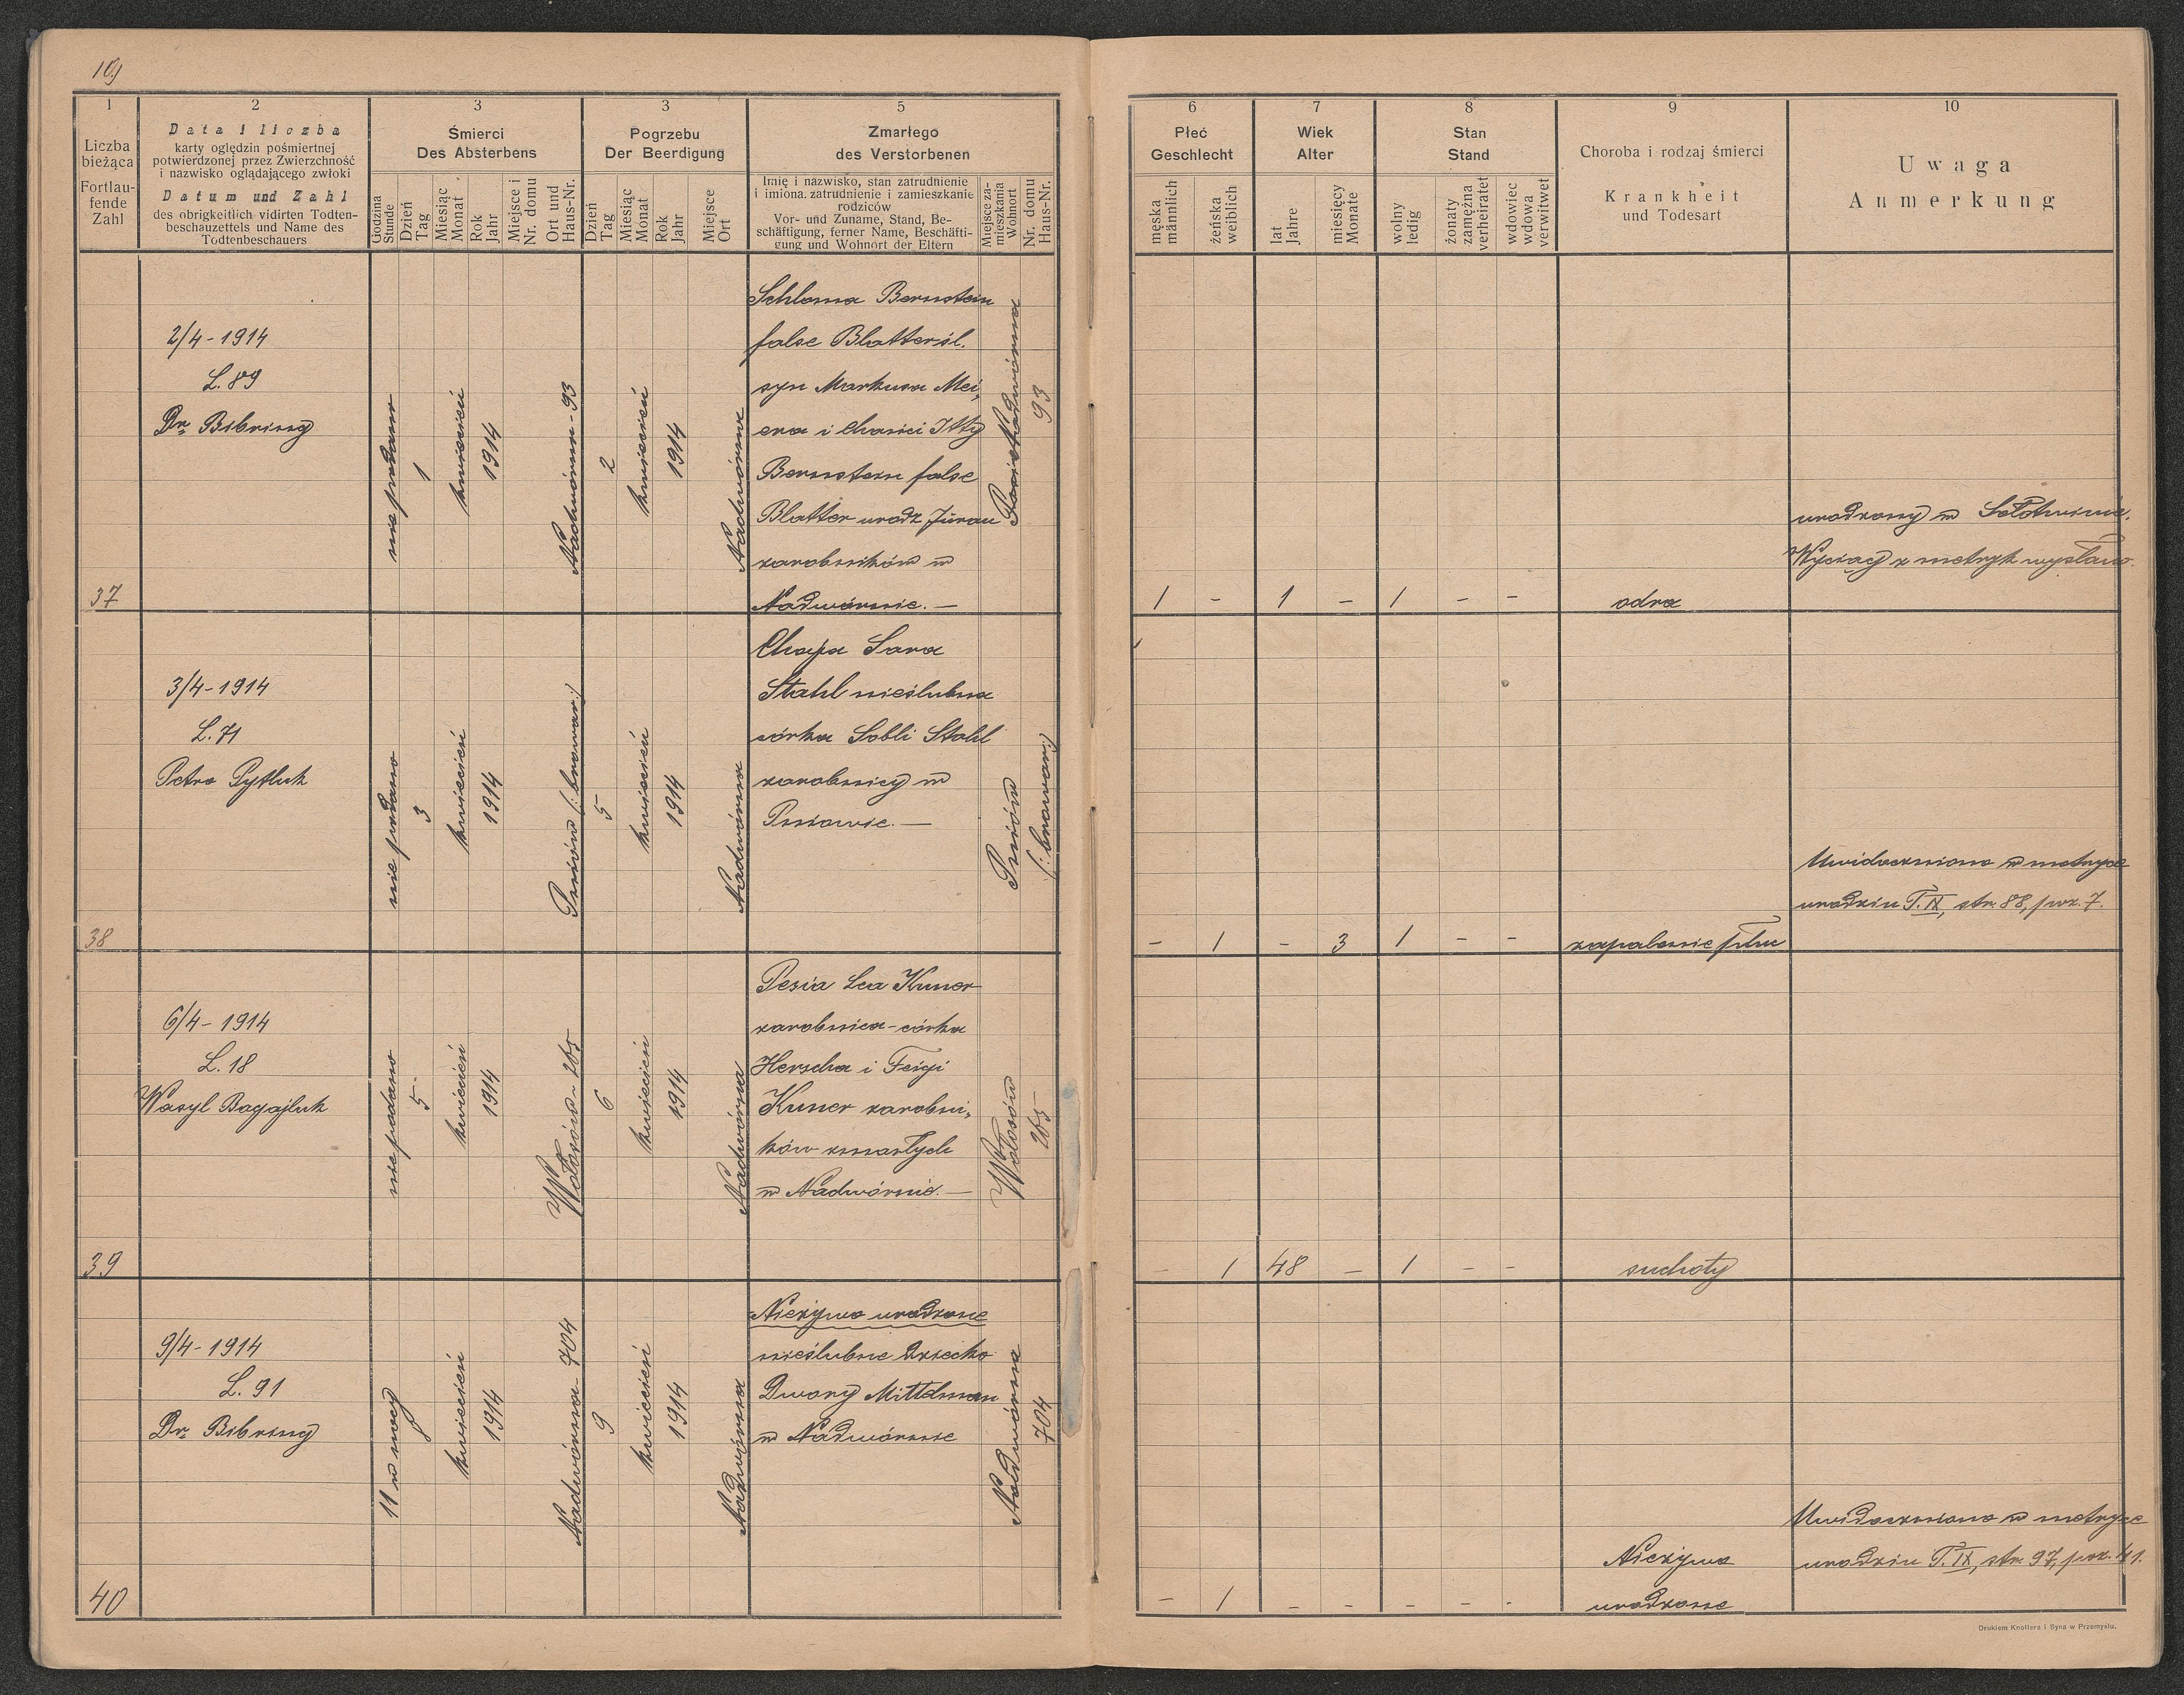 109
1
Liczba
bieżąca
Fortlau-
fende
Zahl
2
Data i liczba
karty oględzin pośmiertnej
potwierdzonej przez Zwierzchność
i nazwisko oglądającego zwłoki
Datum und Zahl
des obrigkeitlich vidirten Todten-
beschauzettels und Name des
Todtenbeschauers
3
Śmierci
Des Absterbens
Godzina
Stunde
Dzień
Tag
Miesiąc
Monat
Rok
Jahr
Miejsce i
Nr. domu
Ort und
Haus-Nr.
3
Pogrzebu
Der Beerdigung
Dzień
Tag
Miesiąc
Monat
Rok
Jahr
Miejsce
Ort
5
Zmarłego
des Verstorbenen
Imię i nazwisko, stan zatrudnienie
i imiona. zatrudnienie i zamieszkanie
rodziców
Vor- und Zuname, Stand, Be-
schäftigung, ferner Name, Beschäfti-
gung und Wohnort der Eltern
Miejsce za-
mieszkania
Wohnort
Nr. domu
Haus-Nr.
6
Płeć
Geschlecht
męska
männlich
żeńska
weiblich
7
Wiek
Alter
lat
Jahre
miesięcy
Monate
8
Stan
Stand
wolny
ledig
żonaty
zamężna
verheiratet
wdowiec
wdowa
verwitwet
9
Choroba i rodzaj śmierci
Krankheit
und Todesart
10
Uwaga
Anmerkung
37
2/4-1914
L. 89
Dr. Bibring
nie podano
1
kwiecień
1914
Nadwórna - 93
2
kwiecień
1914
Nadwórna
Schloma Bernstein
false Blatter śl.
syn Markusa Mei,
era i Chanci Itty
Bernstein false
Blatter urodz Jürau
zarobników w
Nadwórnie. —
Nadwórna
93
1 - 1 - 1 - -
odra
urodzony w Sołotwinie.
Wyciąg z metryk wysłano.
38
3/4-1914
L. 71
Petro Pytluk
nie podano
3
kwiecień
1914
Pniów (: browar:)
5
kwiecień
1914
Nadwórna
Chaja Sara
Stahl nieślubna
córka Sobli Stahl
zarobnicy w
Pniowie. —
Pniów
(: browar:)
- 1 - 3 1 - -
zapalenie płuc
Uwidoczniono w metryce
urodzin T. IX, str. 88, poz. 7.
39
6/4-1914
L. 18
Wasyl Bagajluk
nie podano
5
kwiecień
1914
Wołosów - 265
6
kwiecień
1914
Nadwórna
Pesia Lea Kuner
zarobnica - córka
Herscha i Feigi
Kuner zarobni,
ków zmarłych
w Nadwórnie. —
Wołosów
265
- 1 48 - 1 - -
suchoty
40
9/4-1914
L. 91
Dr. Bibring
11 w nocy
8
kwiecień
1914
Nadwórna - 704
9
kwiecień
1914
Nadwórna
Nieżywo urodzone
nieślubne dziecko
Dwory Mittelman
w Nadwórnie
Nadwórna
704
- 1 - - - - -
Nieżywo
urodzone
Uwidoczniono w metryce
urodzin T. IX, str. 97, poz. 41.
Drukiem Knollera i Syna w Przemyślu.